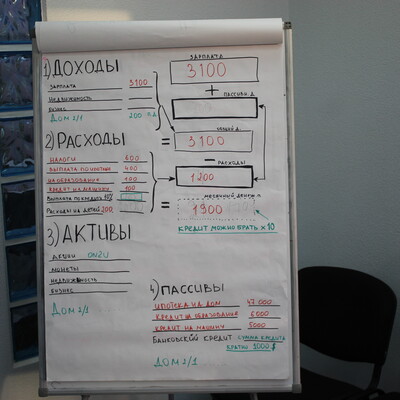 1) ДОХОДЫ
ЗАРПЛАТА 3100
НЕДВИЖИМОСТЬ
БИЗНЕС
ДОМ 2/1 200 П.Д
2) РАСХОДЫ
НАЛОГИ 600
ВЫПЛАТА ПО ИПОТЕКЕ 400
НА ОБРАЗОВАНИЕ 100
КРЕДИТ НА МАШИНУ 100
ВЫПЛАТА ПО КРЕДИТУ 10%
РАСХОДЫ НА ДЕТЕЙ 200
3) АКТИВЫ
АКЦИИ
МОНЕТЫ
НЕДВИЖИМОСТЬ
БИЗНЕС
ДОМ 2/1
ЗАРПЛАТА
3100
+
ПАССИВН Д.
= 3100
-
РАСХОДЫ
1200
= 1900
КРЕДИТ МОЖНО БРАТЬ X 10
4) ПАССИВЫ
ИПОТЕКА НА ДОМ 47 000
КРЕДИТ НА ОБРАЗОВАНИЕ 6000
КРЕДИТ НА МАШИНУ 5000
БАНКОВСКИЙ КРЕДИТ СУММА КРЕДИТА
КРАТНО 1000 $
ДОМ 2/1